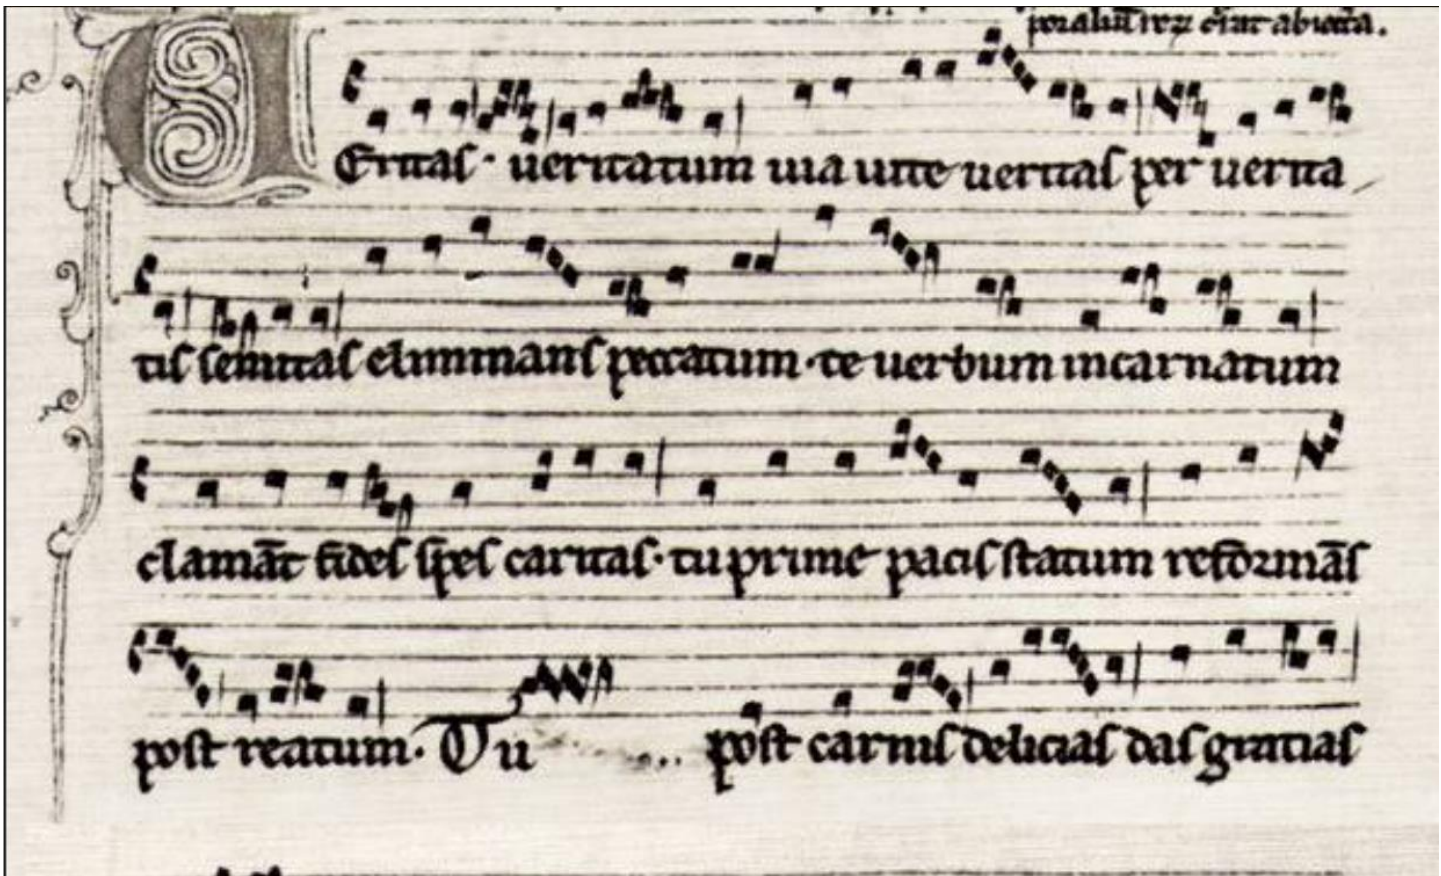 VEritas veritatum via vite veritas per verita
tis semitas eliminans peccatum. te verbum incarnatum
clamāt fides spes caritas. tu prime pacis statum reformās
post reatum. Tu post carnis delicias das gratias